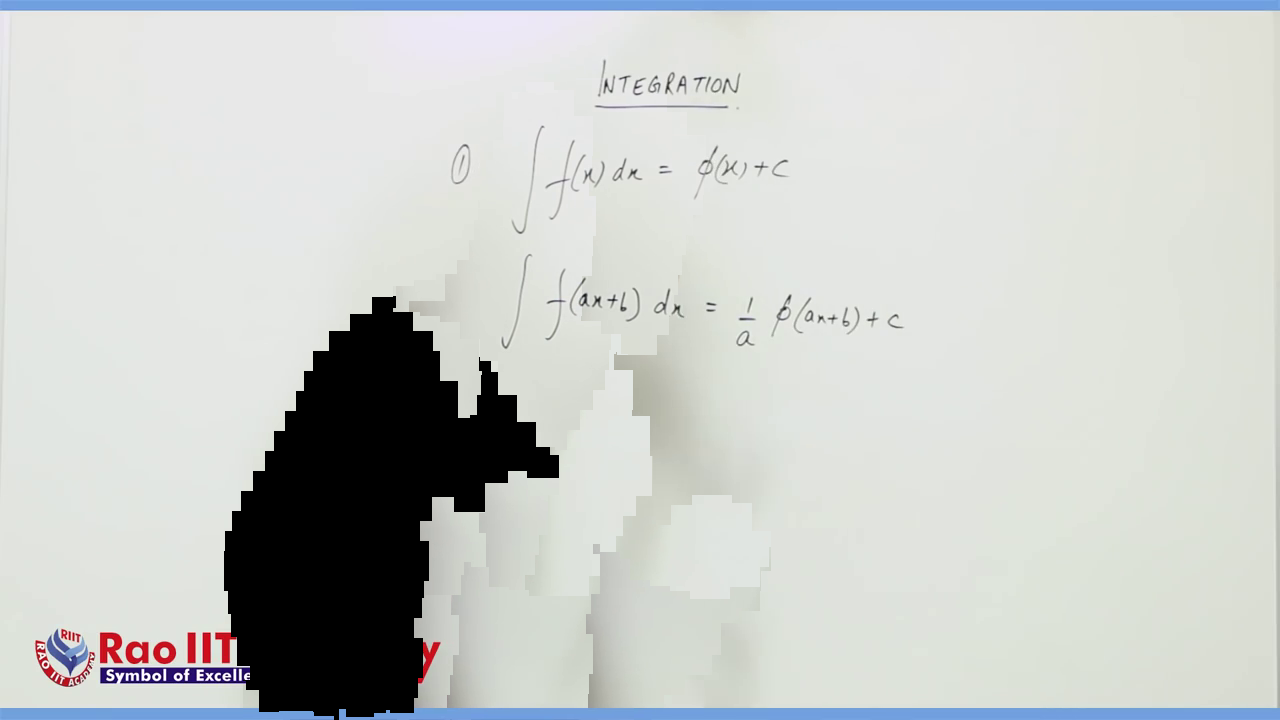 INTEGRATION
① ∫ f(x) dx = ϕ(x) + c
∫ f(ax+b) dx = 1/a ϕ(ax+b) + c
RIIT
RAO IIT ACADEMY
Rao IIT
Symbol of